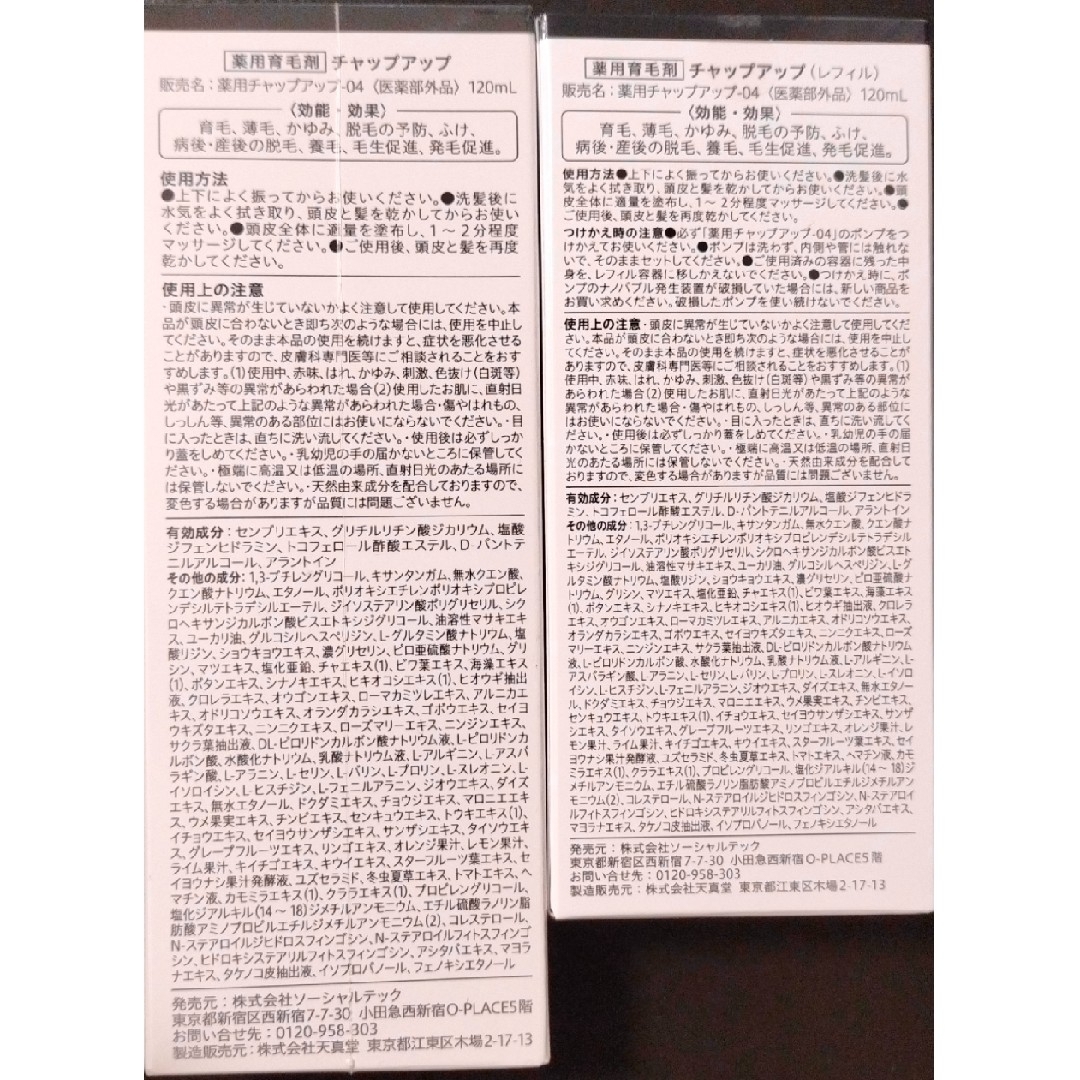 薬用育毛剤 チャップアップ
販売名：薬用チャップアップ-04〈医薬部外品〉120mL
〈効能・効果〉
育毛、薄毛、かゆみ、脱毛の予防、ふけ、
病後・産後の脱毛、養毛、毛生促進、発毛促進。
使用方法
●上下によく振ってからお使いください。●洗髪後に
水気をよく拭き取り、頭皮と髪を乾かしてからお使い
ください。●頭皮全体に適量を塗布し、1～2分程度
マッサージしてください。●ご使用後、頭皮と髪を再度
乾かしてください。
使用上の注意
・頭皮に異常が生じていないかよく注意して使用してください。本
品が頭皮に合わないとき即ち次のような場合には、使用を中止し
てください。そのまま本品の使用を続けますと、症状を悪化させる
ことがありますので、皮膚科専門医等にご相談されることをおすす
めします。(1)使用中、赤味、はれ、かゆみ、刺激、色抜け(白斑等)
や黒ずみ等の異常があらわれた場合(2)使用したお肌に、直射日
光があたって上記のような異常があらわれた場合・傷やはれもの、
しっしん等、異常のある部位にはお使いにならないでください。・目
に入ったときは、直ちに洗い流してください。・使用後は必ずしっか
り蓋をしめてください。・乳幼児の手の届かないところに保管してく
ださい。・極端に高温又は低温の場所、直射日光のあたる場所に
は保管しないでください。・天然由来成分を配合しておりますので、
変色する場合がありますが品質には問題ございません。
有効成分：センブリエキス、グリチルリチン酸ジカリウム、塩酸
ジフェンヒドラミン、トコフェロール酢酸エステル、D-パントテ
ニルアルコール、アラントイン
その他の成分：1,3-ブチレングリコール、キサンタンガム、無水クエン酸、
クエン酸ナトリウム、エタノール、ポリオキシエチレンポリオキシプロピレ
ンデシルテトラデシルエーテル、ジイソステアリン酸ポリグリセリル、シク
ロヘキサンジカルボン酸ビスエトキシジグリコール、油溶性マサキエキ
ス、ユーカリ油、グルコシルヘスペリジン、L-グルタミン酸ナトリウム、塩
酸リジン、ショウキョウエキス、濃グリセリン、ピロ亜硫酸ナトリウム、グリ
シン、マツエキス、塩化亜鉛、チャエキス(1)、ビワ葉エキス、海藻エキス
(1)、ボタンエキス、シナノキエキス、ヒキオコシエキス(1)、ヒオウギ抽出
液、クロレラエキス、オウゴンエキス、ローマカミツレエキス、アルニカエ
キス、オドリコソウエキス、オランダカラシエキス、ゴボウエキス、セイヨ
ウキズタエキス、ニンニクエキス、ローズマリーエキス、ニンジンエキス、
サクラ葉抽出液、DL-ピロリドンカルボン酸ナトリウム液、L-ピロリドンカ
ルボン酸、水酸化ナトリウム、乳酸ナトリウム液、L-アルギニン、L-アスパ
ラギン酸、L-アラニン、L-セリン、L-バリン、L-プロリン、L-スレオニン、L-
イソロイシン、L-ヒスチジン、L-フェニルアラニン、ジオウエキス、ダイズ
エキス、無水エタノール、ドクダミエキス、チョウジエキス、マロニエエキ
ス、ウメ果実エキス、チンピエキス、センキュウエキス、トウキエキス(1)、
イチョウエキス、セイヨウサンザシエキス、サンザシエキス、タイソウエキ
ス、グレープフルーツエキス、リンゴエキス、オレンジ果汁、レモン果汁、
ライム果汁、キイチゴエキス、キウイエキス、スターフルーツ葉エキス、セ
イヨウナシ果汁発酵液、ユズセラミド、冬虫夏草エキス、トマトエキス、ヘ
マチン液、カモミラエキス(1)、クララエキス(1)、プロピレングリコール、
塩化ジアルキル(14～18)ジメチルアンモニウム、エチル硫酸ラノリン脂
肪酸アミノプロピルエチルジメチルアンモニウム(2)、コレステロール、
N-ステアロイルジヒドロスフィンゴシン、N-ステアロイルフィトスフィンゴ
シン、ヒドロキシステアリルフィトスフィンゴシン、アシタバエキス、マヨラ
ナエキス、タケノコ皮抽出液、イソプロパノール、フェノキシエタノール
発売元：株式会社ソーシャルテック
東京都新宿区西新宿7-7-30 小田急西新宿O-PLACE5階
お問い合せ先：0120-958-303
製造販売元：株式会社天真堂 東京都江東区木場2-17-13
薬用育毛剤 チャップアップ(レフィル)
販売名：薬用チャップアップ-04〈医薬部外品〉120mL
〈効能・効果〉
育毛、薄毛、かゆみ、脱毛の予防、ふけ、
病後・産後の脱毛、養毛、毛生促進、発毛促進。
使用方法●上下によく振ってからお使いください。●洗髪後に水
気をよく拭き取り、頭皮と髪を乾かしてからお使いください。●頭
皮全体に適量を塗布し、1～2分程度マッサージしてください。●
ご使用後、頭皮と髪を再度乾かしてください。
つけかえ時の注意●必ず「薬用チャップアップ-04」のポンプをつ
けかえてお使いください。●ポンプは洗わず、内側や管には触れな
いで、そのままセットしてください。●ご使用済みの容器に残った中
身を、レフィル容器に移しかえないでください。●つけかえ時に、ポ
ンプのナノバブル発生装置が破損していた場合には、新しい商品を
お買い求めください。破損したポンプを使い続けないでください。
使用上の注意・頭皮に異常が生じていないかよく注意して使用してくだ
さい。本品が頭皮に合わないとき即ち次のような場合には、使用を中止し
てください。そのまま本品の使用を続けますと、症状を悪化させることが
ありますので、皮膚科専門医等にご相談されることをおすすめします。(1)
使用中、赤味、はれ、かゆみ、刺激、色抜け(白斑等)や黒ずみ等の異常が
あらわれた場合(2)使用したお肌に、直射日光があたって上記のような
異常があらわれた場合・傷やはれもの、しっしん等、異常のある部位に
はお使いにならないでください。・目に入ったときは、直ちに洗い流してく
ださい。・使用後は必ずしっかり蓋をしめてください。・乳幼児の手の届
かないところに保管してください。・極端に高温又は低温の場所、直射日
光のあたる場所には保管しないでください。・天然由来成分を配合して
おりますので、変色する場合がありますが品質には問題ございません。
有効成分：センブリエキス、グリチルリチン酸ジカリウム、塩酸ジフェンヒドラ
ミン、トコフェロール酢酸エステル、D-パントテニルアルコール、アラントイン
その他の成分：1,3-ブチレングリコール、キサンタンガム、無水クエン酸、クエン酸ナ
トリウム、エタノール、ポリオキシエチレンポリオキシプロピレンデシルテトラデシル
エーテル、ジイソステアリン酸ポリグリセリル、シクロヘキサンジカルボン酸ビスエト
キシジグリコール、油溶性マサキエキス、ユーカリ油、グルコシルヘスペリジン、L-グ
ルタミン酸ナトリウム、塩酸リジン、ショウキョウエキス、濃グリセリン、ピロ亜硫酸ナ
トリウム、グリシン、マツエキス、塩化亜鉛、チャエキス(1)、ビワ葉エキス、海藻エキス
(1)、ボタンエキス、シナノキエキス、ヒキオコシエキス(1)、ヒオウギ抽出液、クロレラ
エキス、オウゴンエキス、ローマカミツレエキス、アルニカエキス、オドリコソウエキス、
オランダカラシエキス、ゴボウエキス、セイヨウキズタエキス、ニンニクエキス、ローズ
マリーエキス、ニンジンエキス、サクラ葉抽出液、DL-ピロリドンカルボン酸ナトリウム
液、L-ピロリドンカルボン酸、水酸化ナトリウム、乳酸ナトリウム液、L-アルギニン、L-
アスパラギン酸、L-アラニン、L-セリン、L-バリン、L-プロリン、L-スレオニン、L-イソロ
イシン、L-ヒスチジン、L-フェニルアラニン、ジオウエキス、ダイズエキス、無水エタノー
ル、ドクダミエキス、チョウジエキス、マロニエエキス、ウメ果実エキス、チンピエキス、
センキュウエキス、トウキエキス(1)、イチョウエキス、セイヨウサンザシエキス、サンザ
シエキス、タイソウエキス、グレープフルーツエキス、リンゴエキス、オレンジ果汁、レ
モン果汁、ライム果汁、キイチゴエキス、キウイエキス、スターフルーツ葉エキス、セイ
ヨウナシ果汁発酵液、ユズセラミド、冬虫夏草エキス、トマトエキス、ヘマチン液、カモ
ミラエキス(1)、クララエキス(1)、プロピレングリコール、塩化ジアルキル(14～18)ジ
メチルアンモニウム、エチル硫酸ラノリン脂肪酸アミノプロピルエチルジメチルアンモ
ニウム(2)、コレステロール、N-ステアロイルジヒドロスフィンゴシン、N-ステアロイ
ルフィトスフィンゴシン、ヒドロキシステアリルフィトスフィンゴシン、アシタバエキス、
マヨラナエキス、タケノコ皮抽出液、イソプロパノール、フェノキシエタノール
発売元：株式会社ソーシャルテック
東京都新宿区西新宿7-7-30 小田急西新宿O-PLACE5階
お問い合せ先：0120-958-303
製造販売元：株式会社天真堂 東京都江東区木場2-17-13